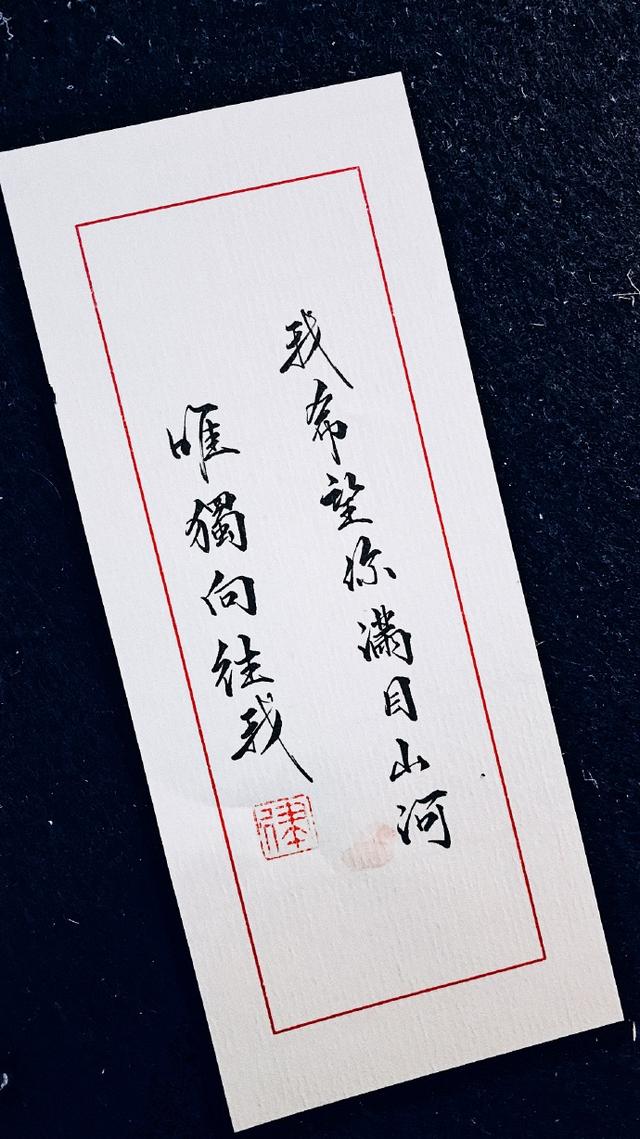 我希望你满目山河
唯獨向往我